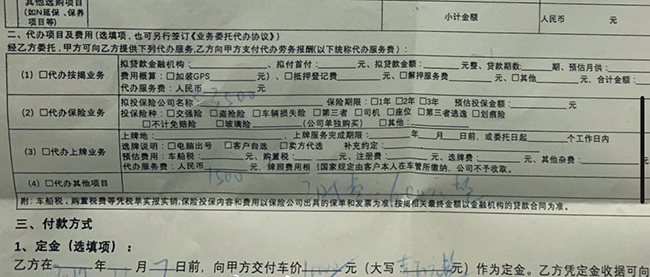 其他选购项目
(如N延保、保养
项目等)
小计金额 人民币 元
二、代办项目及费用(选填项，也可另行签订《业务委托代办协议》)
经乙方委托，甲方可向乙方提供下列代办服务,乙方向甲方支付代办劳务报酬(以下统称代办服务费)：
(1) □代办按揭业务
拟贷款金融机构：______、拟付首付：____元、拟贷款金额：____元整、贷款期数：____期、预估月供：
费用概算：□加装GPS____元、□抵押登记费____元、□解押服务费____元、□其他____元，合计金额：
代办服务费：人民币____元
(2) □代办保险业务
拟投保险公司名称：3500 保险期限：□1年 □2年 □3年 预估投保金额：____元
投保险种：□交强险 □盗抢险 □车辆损失险 □第三者 □司机 □座位 □第三者逃逸 □划痕险
□不计免赔险 □玻璃险______(公司单独购买) □其他：
(3) □代办上牌业务
上牌地：______，上牌服务完成期限：____年____月____日前，或委托日起____个工作日内
选牌说明：□电脑出号 □客户自选 □卖方代选 补充约定：
预估费用：车船税：____元，购置税：____元，注册费：____元，选牌费：____元，其他杂费：____元
代办服务费：人民币 1500 元，牌照费用根据国家规定由客户本人在车管所缴纳，公司不予收取。
(4) □代办其他项目
附：车船税、购置税费等凭税单实报实销;保险投保内容和费用以保险公司出具的保单和发票为准;按揭相关最终金额以金融机构的贷款合同为准。
三、付款方式
1、定金(选填项)：
乙方在____年____月 7 日前，向甲方交付车价____元(大写____元)作为定金。乙方凭定金收据可向